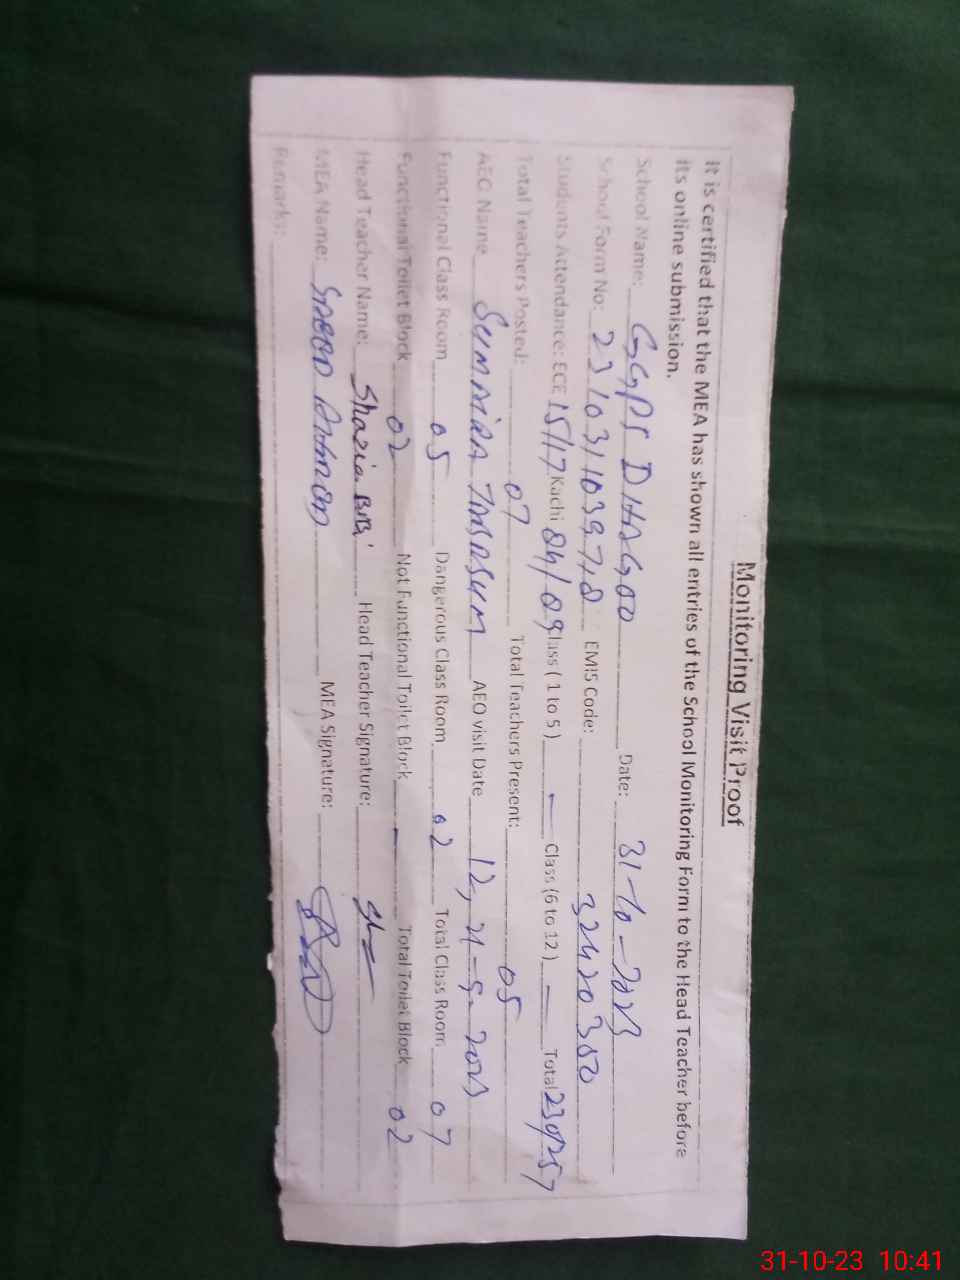 Monitoring Visit Proof
It is certified that the MEA has shown all entries of the School Monitoring Form to the Head Teacher before
its online submission.
School Name: GGPS DHAGOO Date: 31-10-2023
School Form No: 231031103978 EMIS Code: 32420350
Students Attendance: ECE 15/17 Kachi 04/09 Class (1 to 5) — Class (6 to 12) — Total 239/257
Total Teachers Posted: 07 Total Teachers Present: 05
AEO Name SUMMIRA TABASUM AEO visit Date 12, 21-9-2023
Functional Class Room 05 Dangerous Class Room 02 Total Class Room 07
Functional Toilet Block 02 Not Functional Toilet Block - Total Toilet Block 02
Head Teacher Name: Shazia BiBi Head Teacher Signature:
MEA Name: SAEED AHMED MEA Signature:
Remarks:
31-10-23 10:41